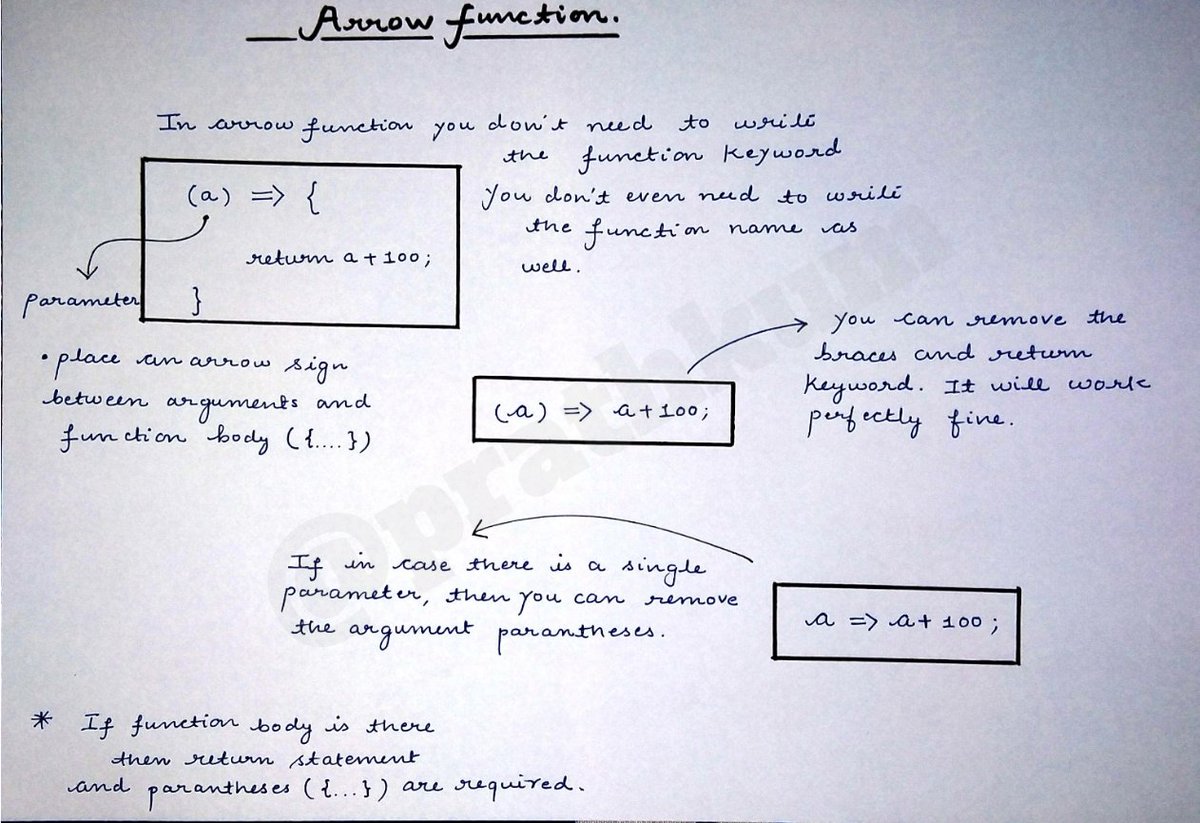 Arrow function.
In arrow function you don't need to write
the function keyword
(a) => {
return a + 100;
}
parameter
You don't even need to write
the function name as
well.
• place an arrow sign
between arguments and
function body ({....})
(a) => a + 100;
you can remove the
braces and return
keyword. It will work
perfectly fine.
If in case there is a single
parameter, then you can remove
the argument parantheses.
a => a + 100;
* If function body is there
then return statement
and parantheses ({...}) are required.
@prathkum